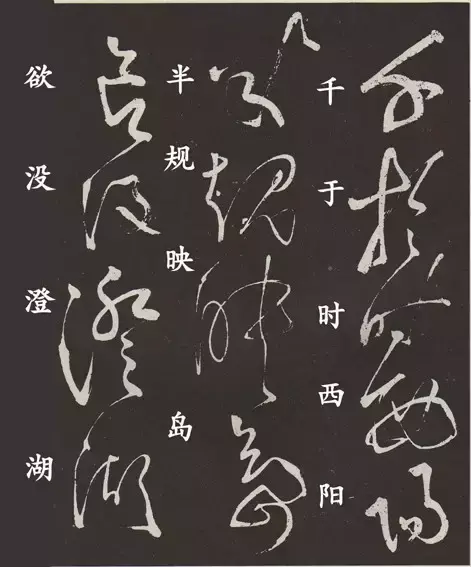 千于时西阳
半规映岛
欲没澄湖